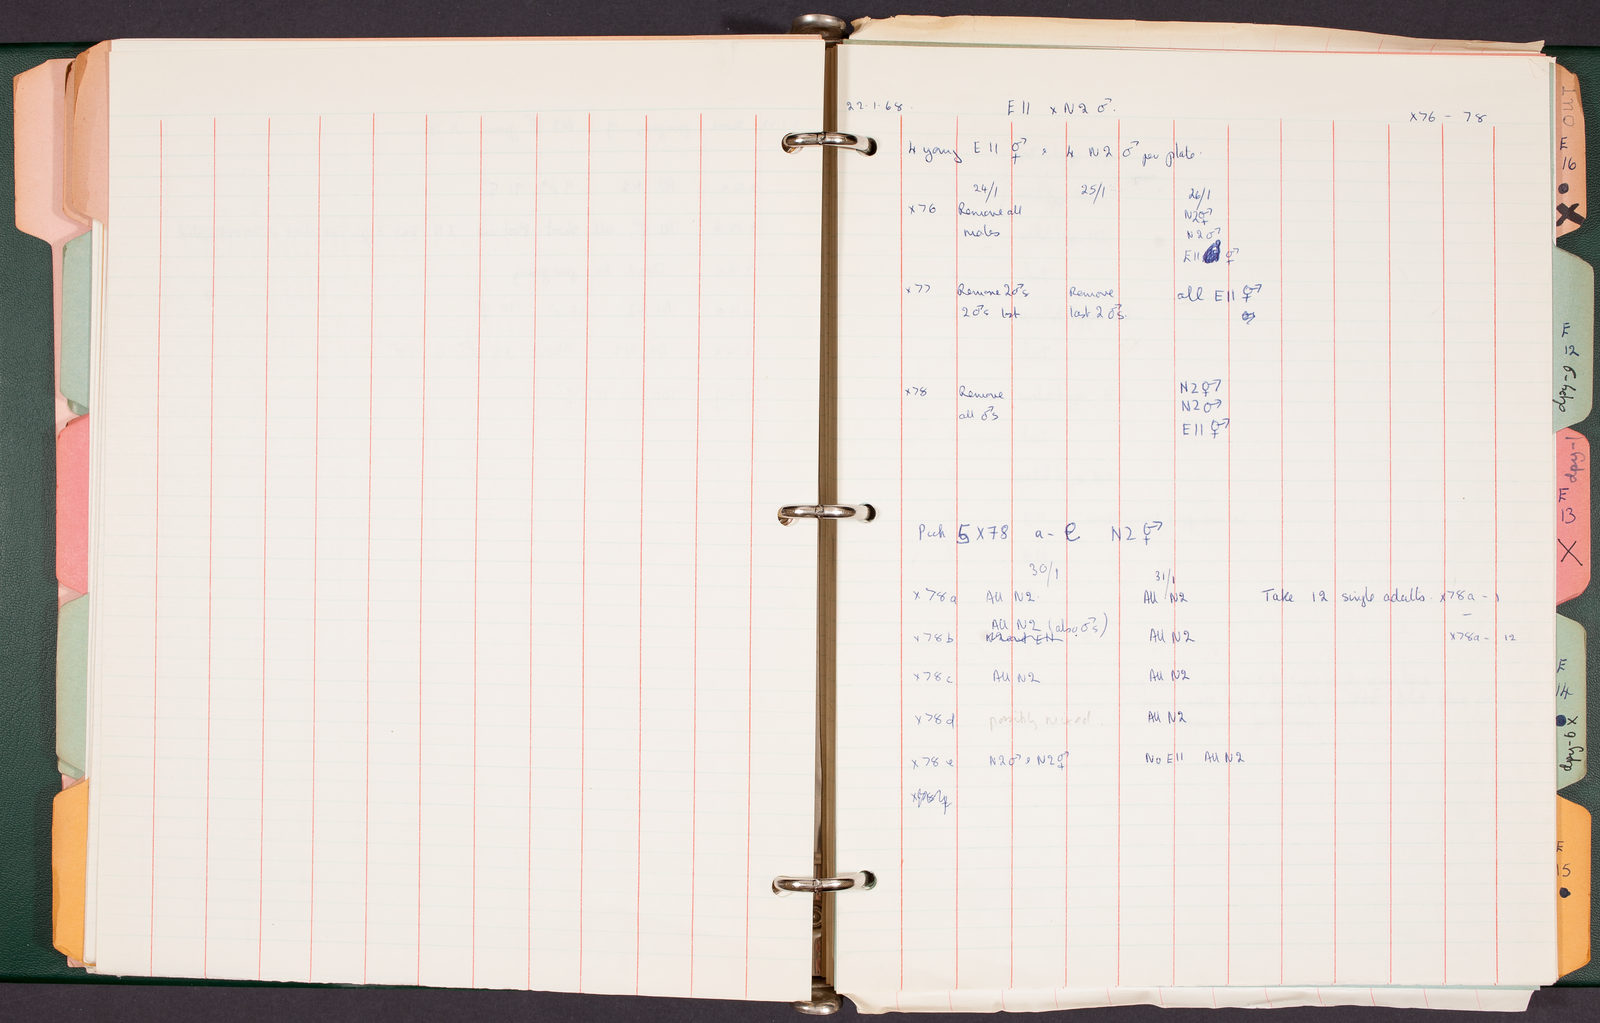 22.1.68.
E11 x N2 ♂.
x76 - 78
4 young E11 ⚥ x 4 N2 ♂ per plate.
24/1 25/1 26/1
x76 Remove all N2⚥
males N2♂
E11 ⚥
x77 Remove 2♂s Remove all E11 ⚥
2♂s lost last 2♂s.
x78 Remove N2⚥
all ♂s N2♂
E11⚥
Pick 5 x78 a-e N2⚥
30/1 31/1
x78a All N2. All N2 Take 12 single adults. x78a - 1
All N2 (also ♂s) -
x78b All N2 x78a - 12
x78c All N2 All N2
x78d possibly All N2
x78e N2♂ + N2⚥ No E11 All N2
E
16
X
E
12
dpy-9
dpy-1
E
13
X
E
14
dpy-6 X
E
15